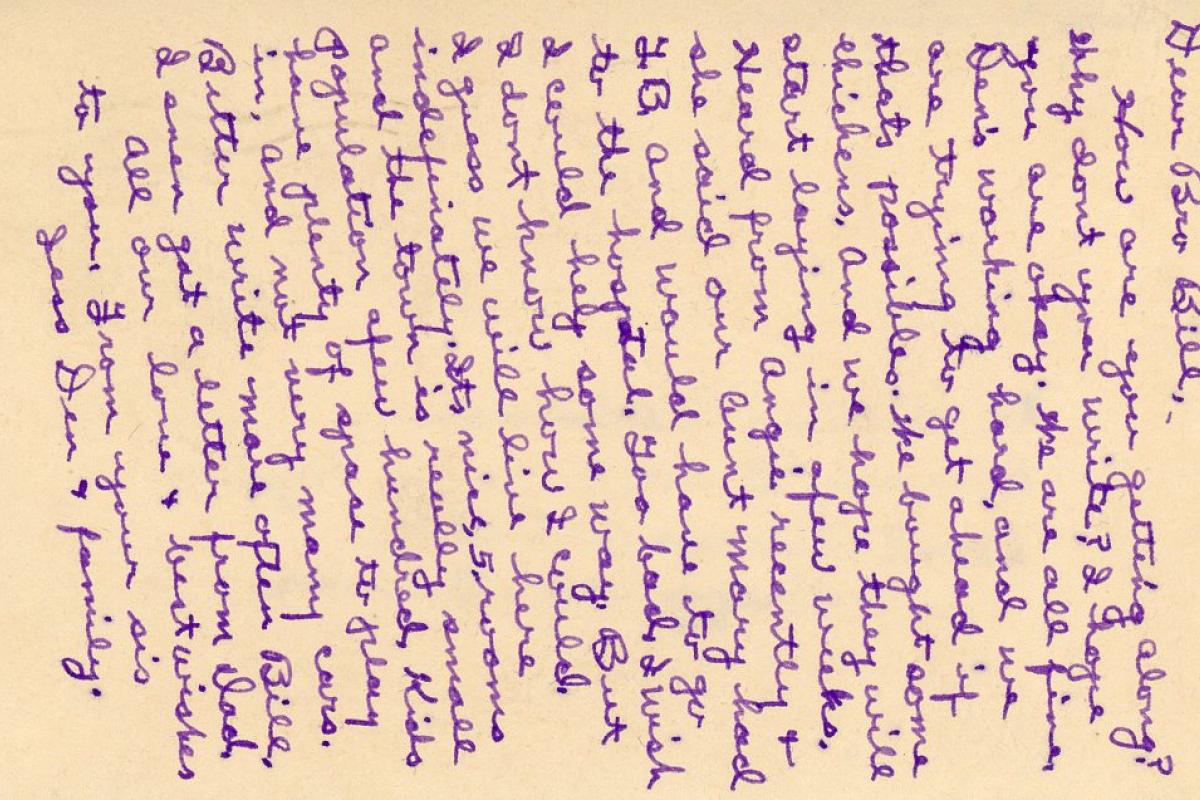 Dear Bro Bill,
How are you getting along?
Why dont you write? I hope
you are okay. We are all fine.
Den's working hard, and we
are trying to get ahead if
thats possible. We bought some
chickens. And we hope they will
start laying in afew weeks.
Heard from Angie recently &
she said our Aunt Mary had
TB and would have to go
to the hosptal. Too bad, I wish
I could help some way. But
I dont know how I could.
I guess we will live here
indefinately. Its nice, 5, rooms
and the town is really small
Population afew hundred, Kids
have plenty of space to play
in, and not very many cars.
Better write more often Bill,
I aner get a letter from Dad,
All our love & best wishes
to you. From your sis
Jess Den & family.